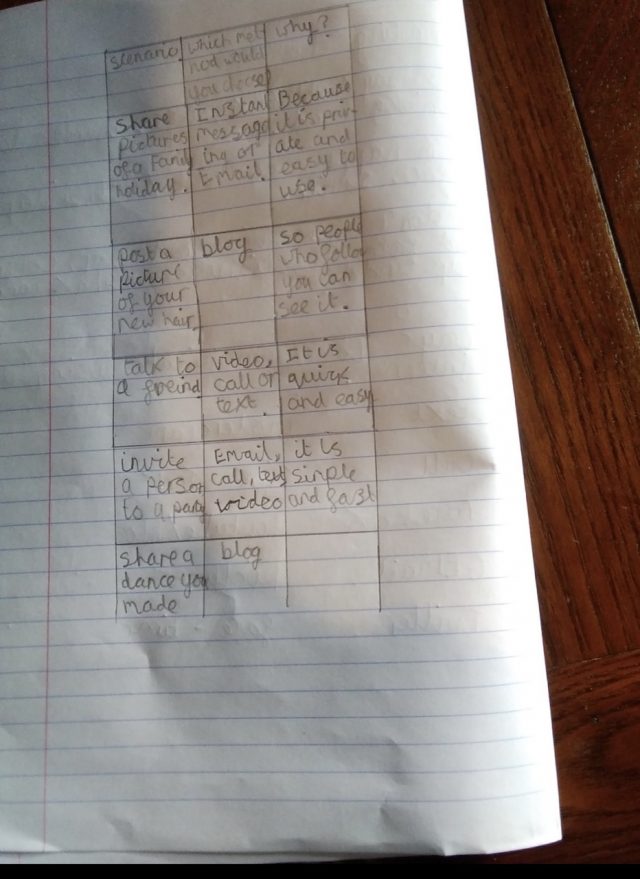 scenario. which met why?
hod would
you choose?
Share Instan Because
pictures messag it is priv
of a Family ing or ate and
holiday. Email. easy to
use.
post a blog so people
picture who follow
of your you can
new hair. see it.
talk to video, It is
a freind call or quick
text. and easy
invite Email, it is
a person call, text simple
to a party video and fast
share a blog
dance you
made